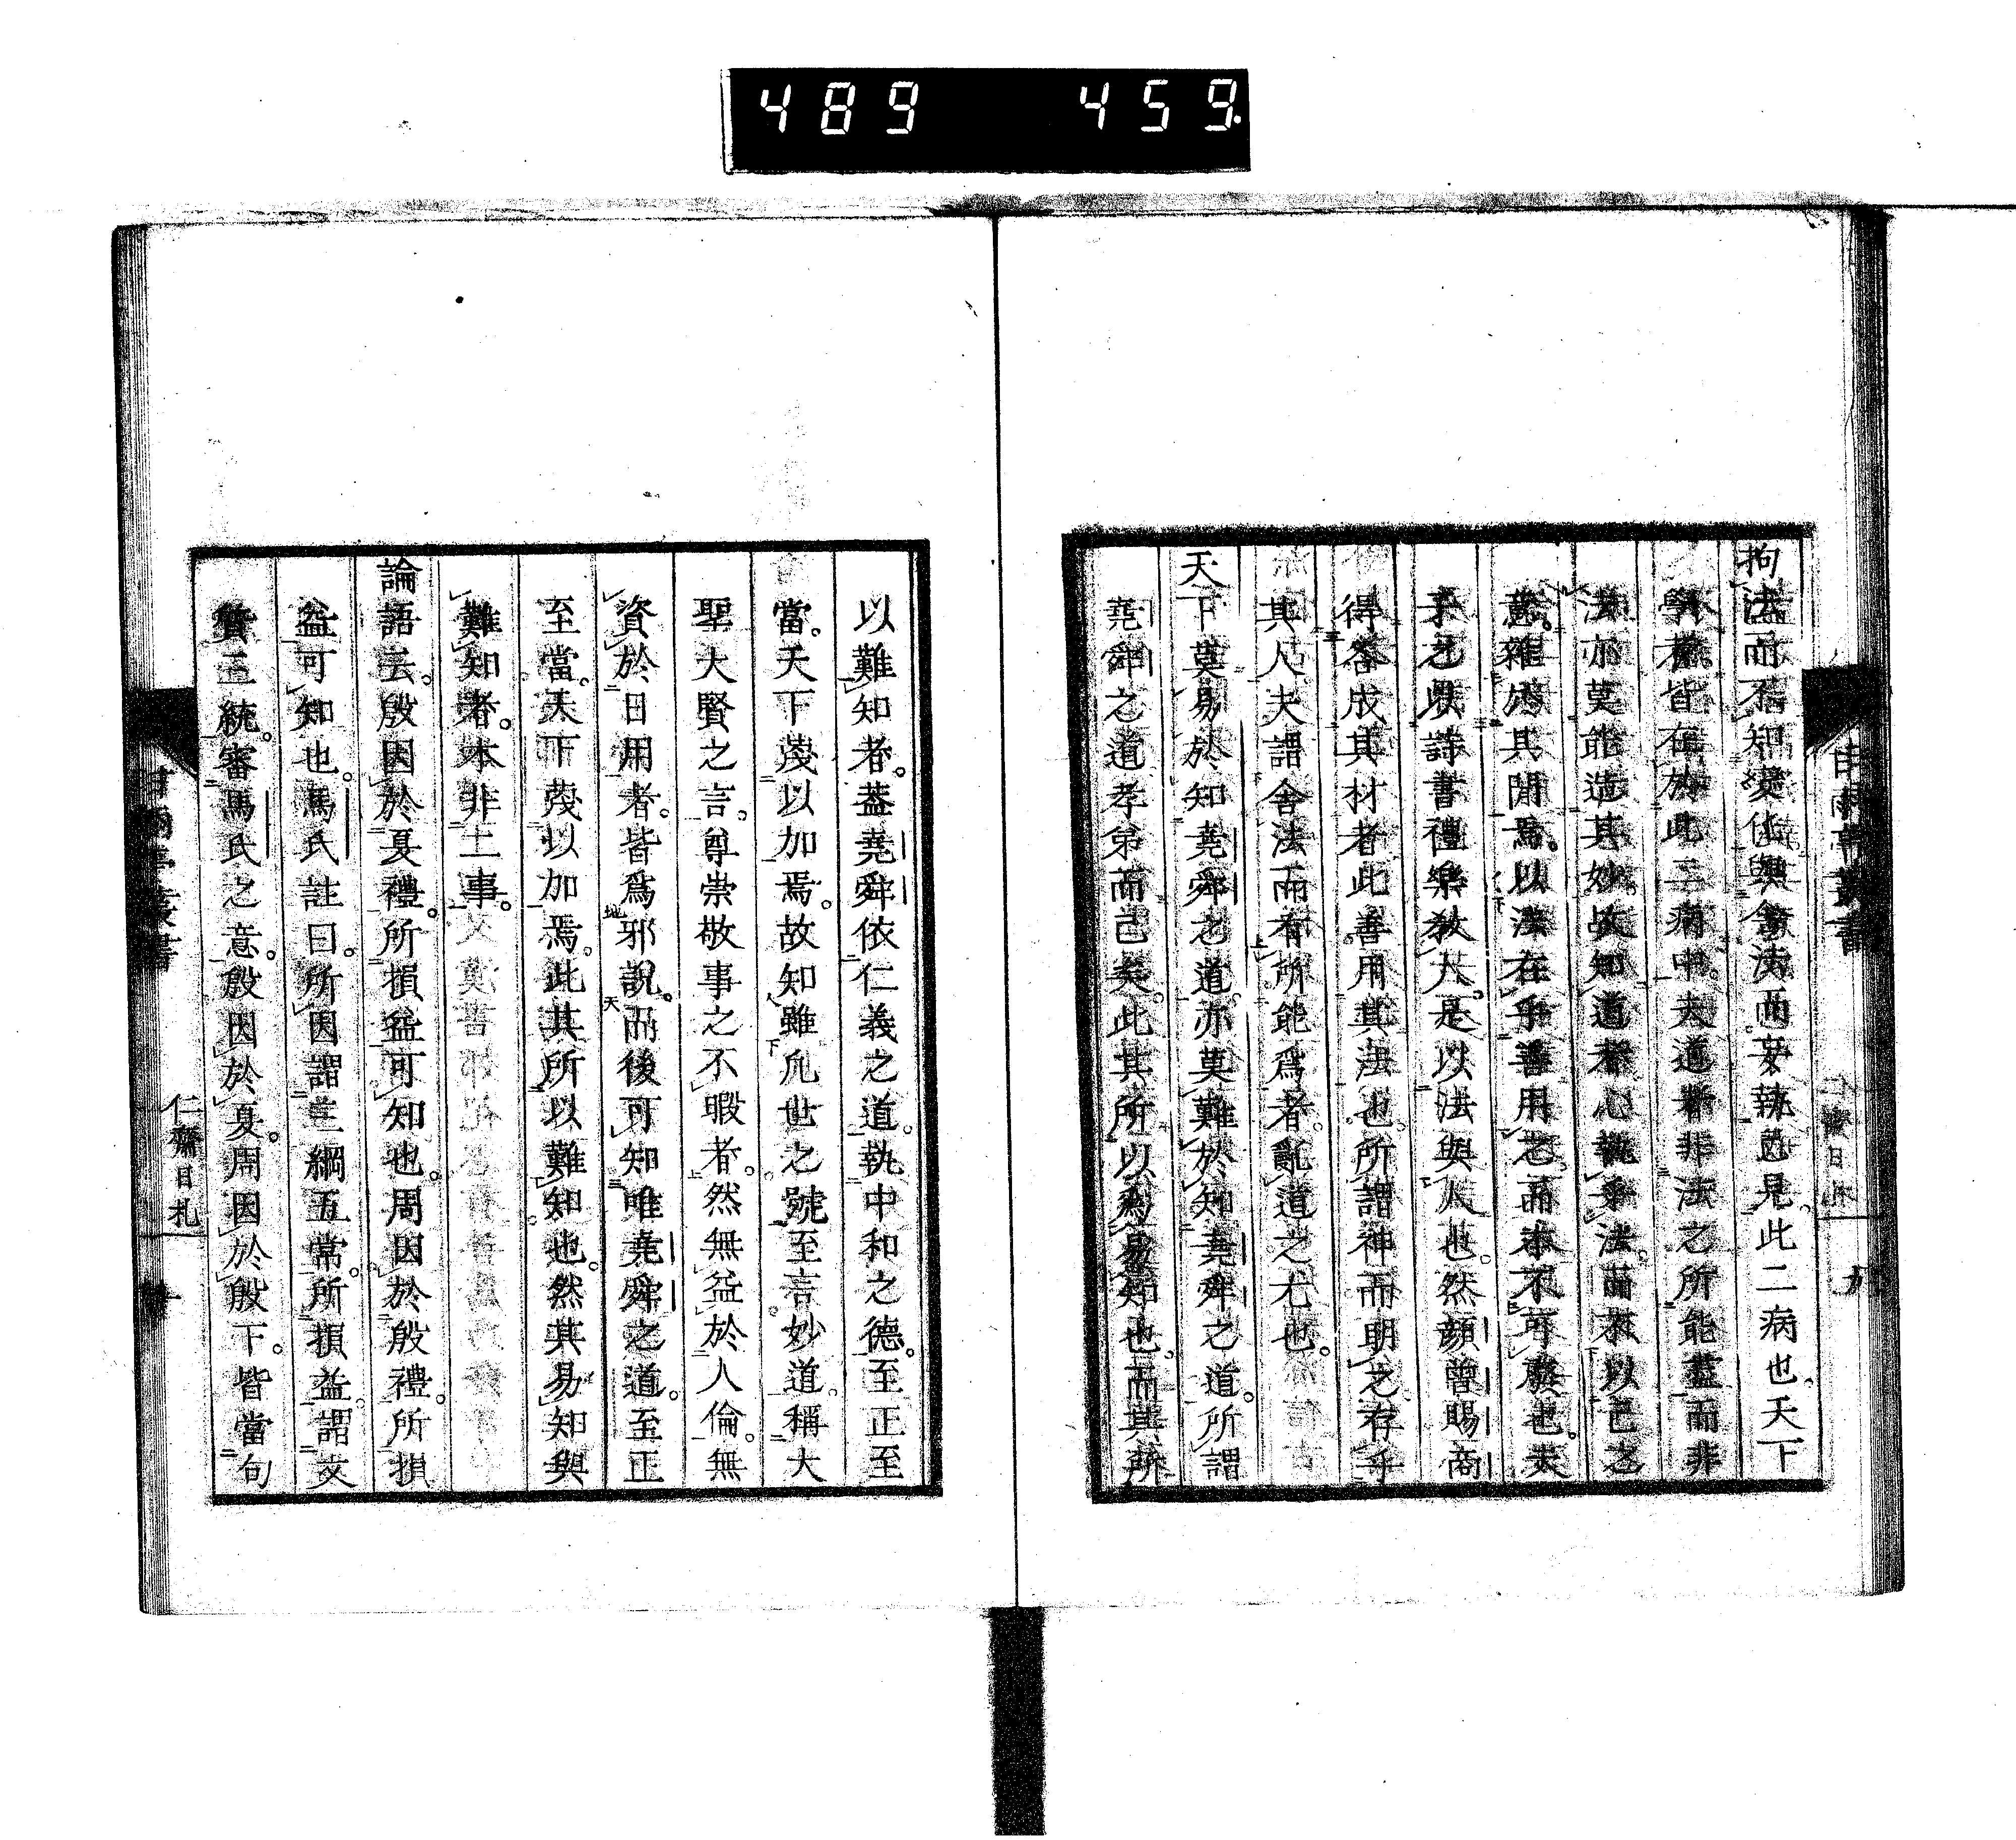 489 459
拘法而不知變化與舍法而妄執愚見此二病也天下
學者皆在於此二病中夫道者非法之所能盡而非
法亦莫能造其妙故知道者心執乎法而不以己之
意雜於其間焉以法在乎善用之而本不可廢也夫
子之以詩書禮樂教人是以法與人也然顏曾賜商
得各成其材者此善用其法也所謂神而明之存乎
其人夫謂舍法而有所能爲者亂道之尤也
天下莫易於知堯舜之道亦莫難於知堯舜之道所謂
堯舜之道孝弟而已矣此其所以爲易知也而其所
以難知者蓋堯舜依仁義之道執中和之德至正至
當天下蔑以加焉故知雖凡世之號至言妙道稱大
聖大賢之言尊崇敬事之不暇者然無益於人倫無
資於日用者皆爲邪說而後可知唯堯舜之道至正
至當天下蔑以加焉此其所以難知也然其易知與
難知者本非二事
論語云殷因於夏禮所損益可知也周因於殷禮所損
益可知也馬氏註曰所因謂三綱五常所損益謂文
質三統審馬氏之意殷因於夏周因於殷下皆當句
仁齋日札